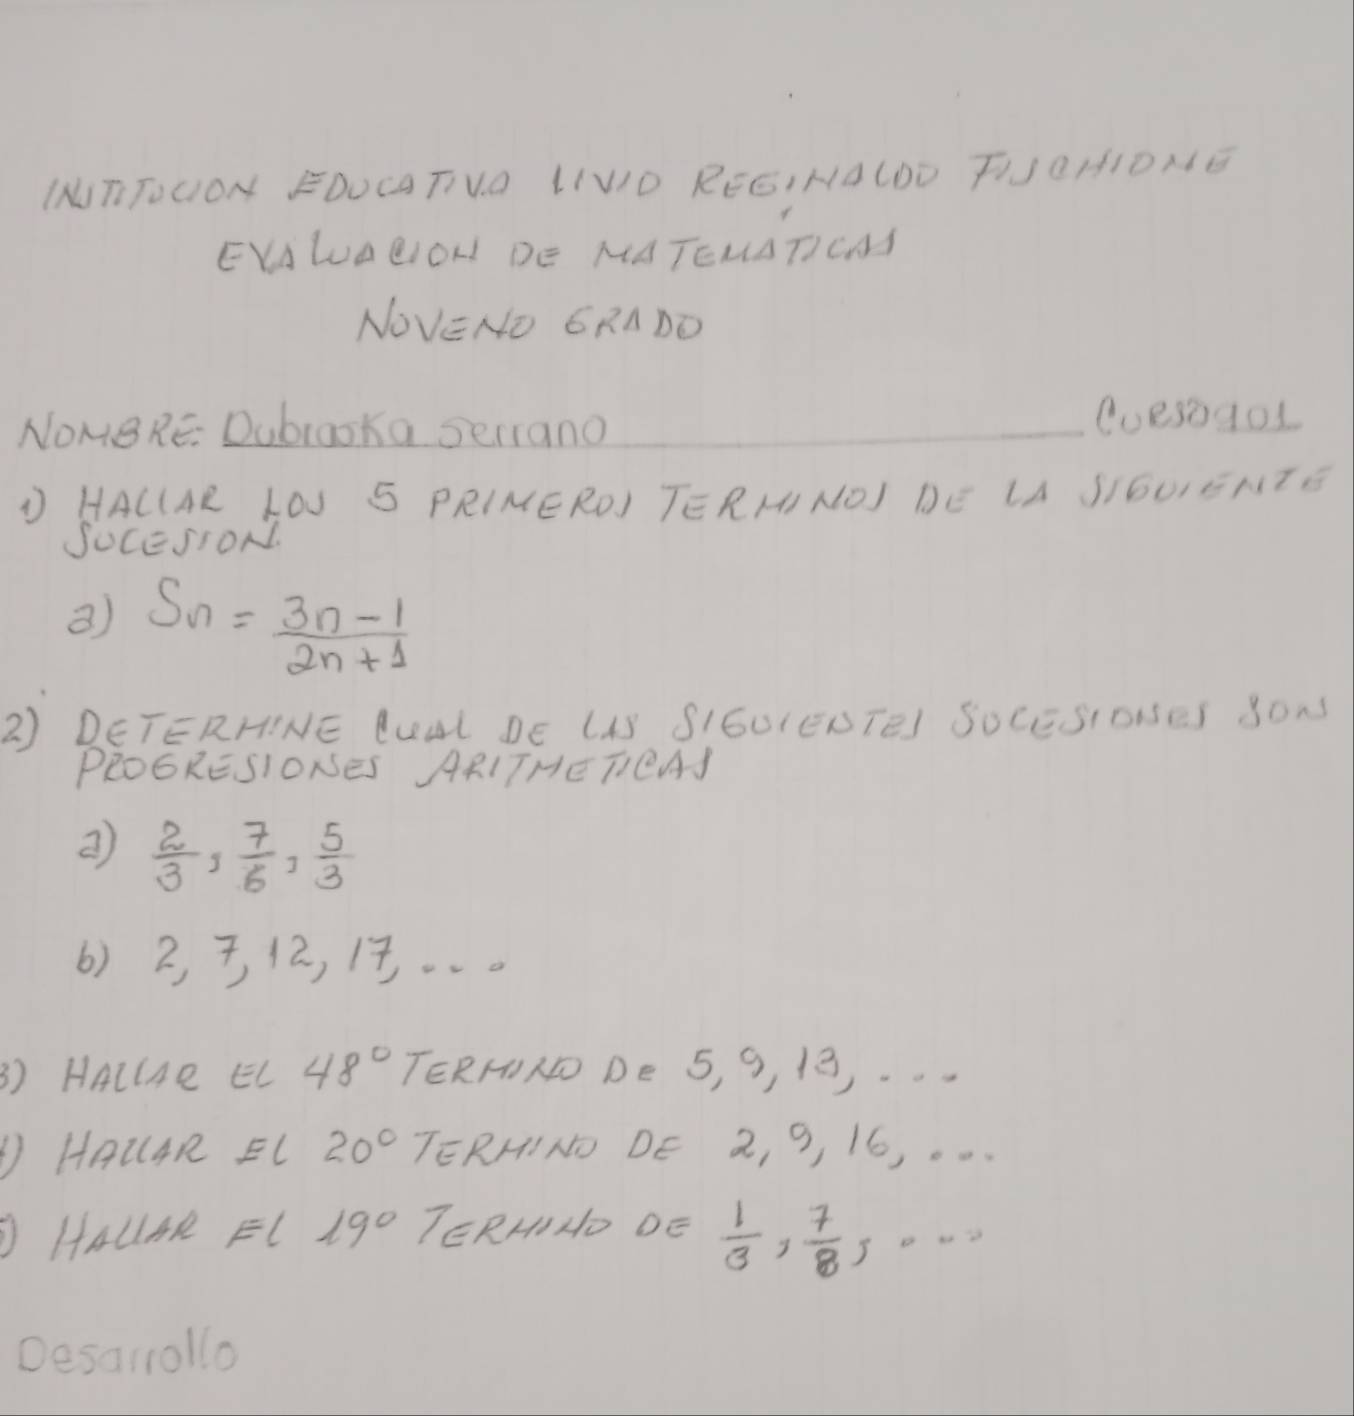 INSTITUCION EDUCATIVA LIVIO REGINALDO FISCHIONE
EVALUACION DE MATEMATICAS
NOVENO GRADO
NOMBRE: Dubraska Serrano CURSO 901
1) HALLAR LOS 5 PRIMEROS TERMINOS DE LA SIGUIENTE
SUCESION.
a) Sn = (3n - 1)/(2n + 1)
2) DETERMINE CUAL DE LAS SIGUIENTES SUCESIONES SON
PROGRESIONES ARITMETICAS
a) 2/3, 7/6, 5/3
b) 2, 7, 12, 17, ....
3) HALLAR EL 48° TERMINO De 5, 9, 13, ....
4) HALLAR EL 20° TERMINO DE 2, 9, 16, ....
5) HALLAR EL 19° TERMINO DE 1/3, 7/8, ....
Desarrollo